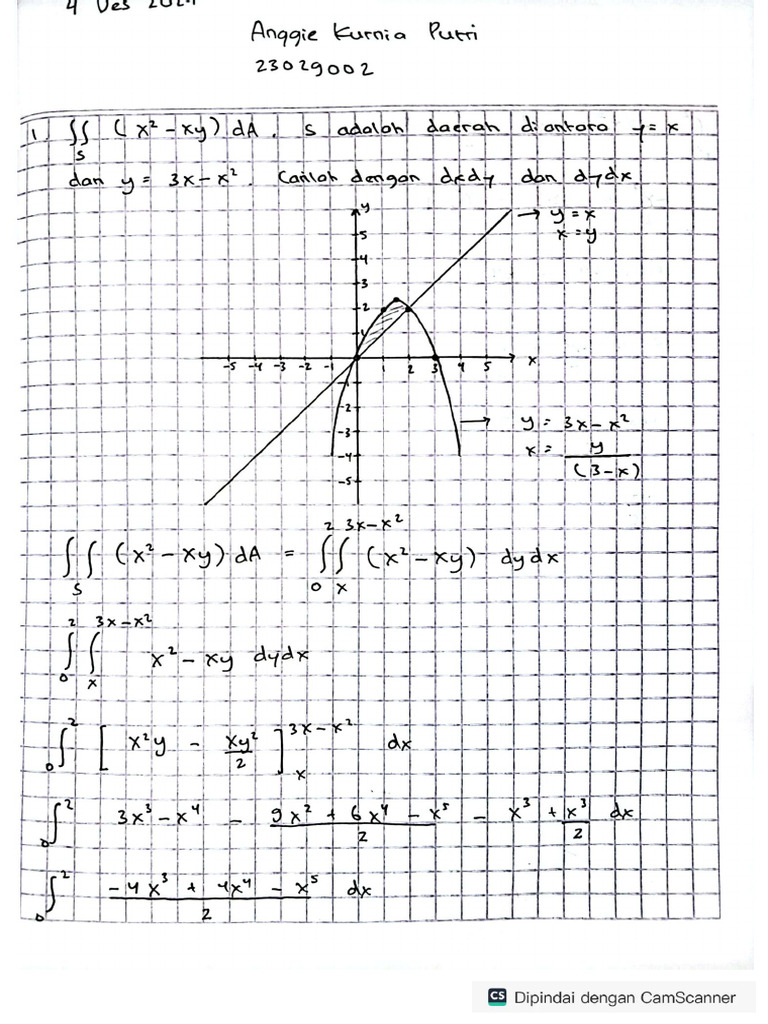 4 Des 2024
Anggie Kurnia Putri
23029002
1. ∬_S (x² - xy) dA. S adalah daerah diantara y = x
dan y = 3x - x². Carilah dengan dxdy dan dydx
y
→ y = x
x = y
5
4
3
2
1
-5 -4 -3 -2 -1 1 2 3 4 5 x
-1
-2
-3
-4
-5
→ y = 3x - x²
x = y/(3-x)
∬_S (x² - xy) dA = ∫_0^2 ∫_x^{3x-x²} (x² - xy) dydx
∫_0^2 ∫_x^{3x-x²} x² - xy dydx
∫_0^2 [x²y - xy²/2]_x^{3x-x²} dx
∫_0^2 3x³ - x⁴ - (9x² + 6x⁴ - x⁵)/2 - x³ + x³/2 dx
∫_0^2 (-4x³ + 4x⁴ - x⁵)/2 dx
CS Dipindai dengan CamScanner